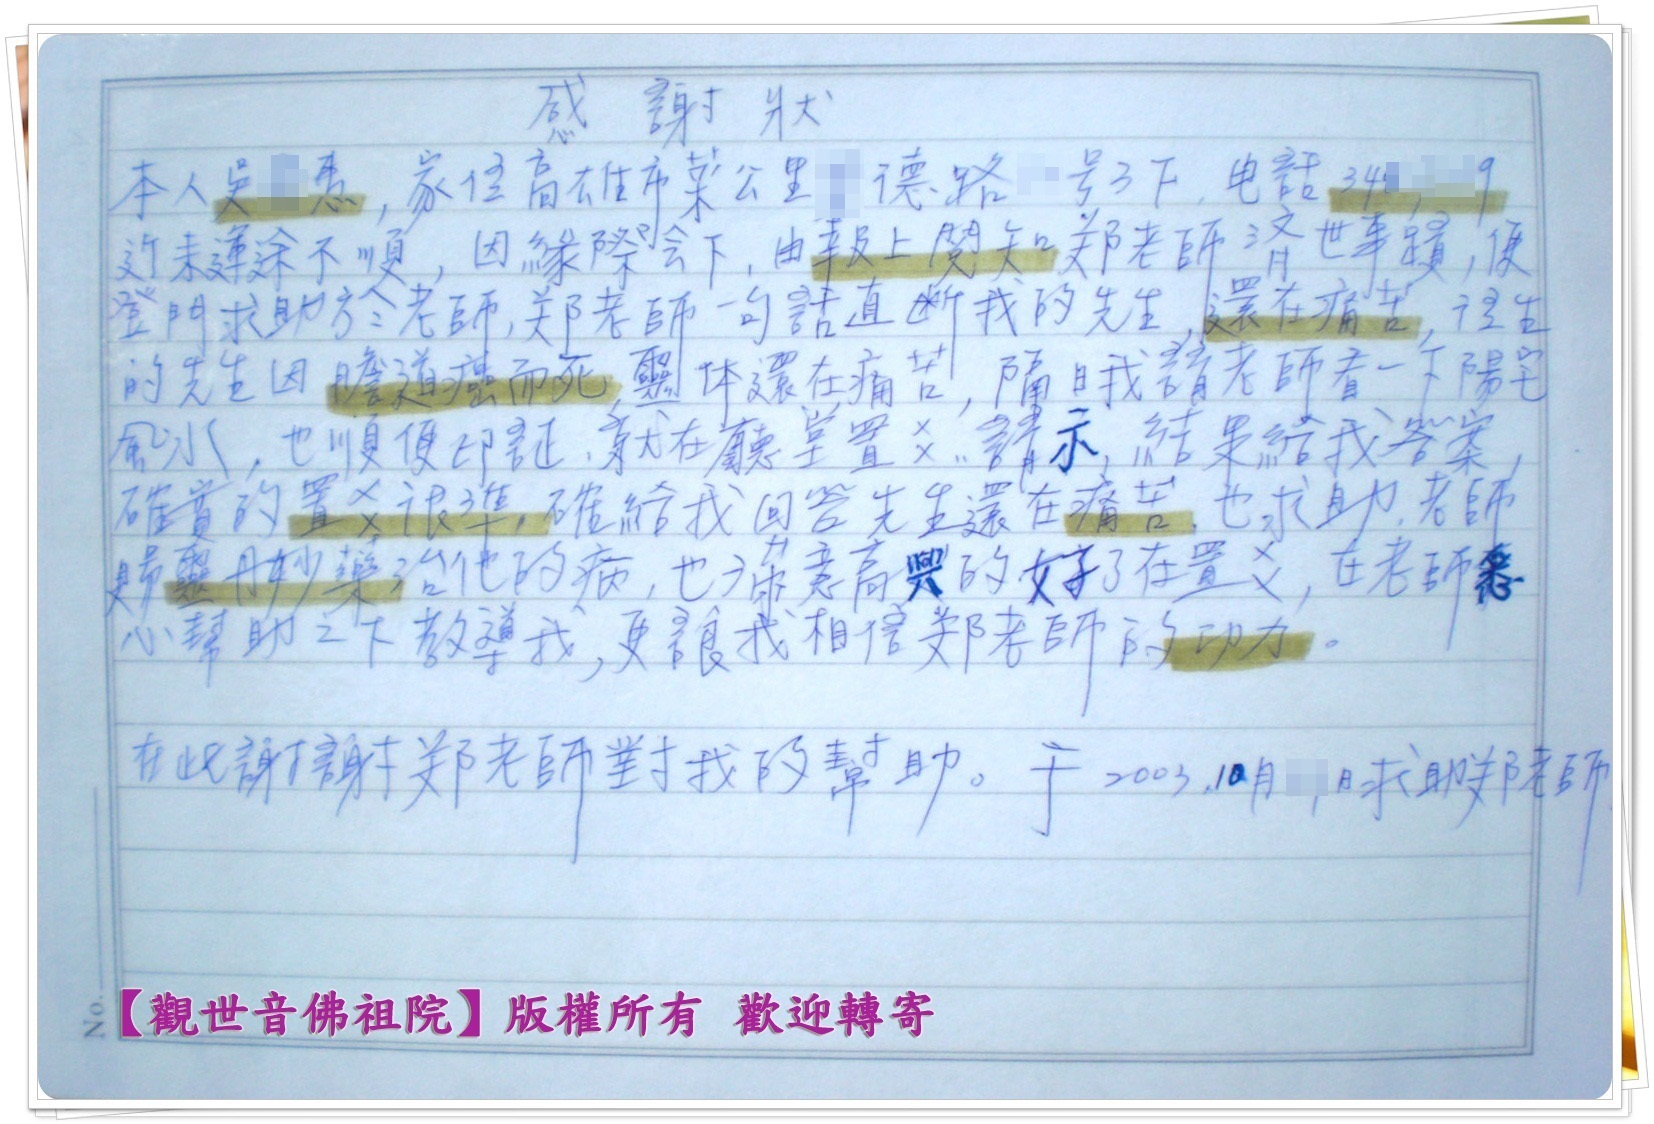 感謝狀
本人吳 憑，家住高雄市菜公里 德路 号3下．电話 34 9
近未運途不順，因緣際会下，由報上閱知郑老師濟世事蹟，便
登門求助於老師，郑老師一句話直断我的先生，還在痛苦，往生
的先生因膽道癌而死，靈体還在痛苦，隔日我請老師看一下陽宅
風水，也順便印証，就在廳堂置㸚請示，結果給我答案，
確實的置㸚很準，確給我回答先生還在痛苦，也求助．老師
賜靈丹妙藥治他的病，也滿意高興的好了在置㸚，在老師悉
心幫助之下教導我，更讓我相信郑老師的功力。
在此謝謝郑老師對我的幫助。于 2003.10月 日求助郑老師
No.
【觀世音佛祖院】版權所有 歡迎轉寄